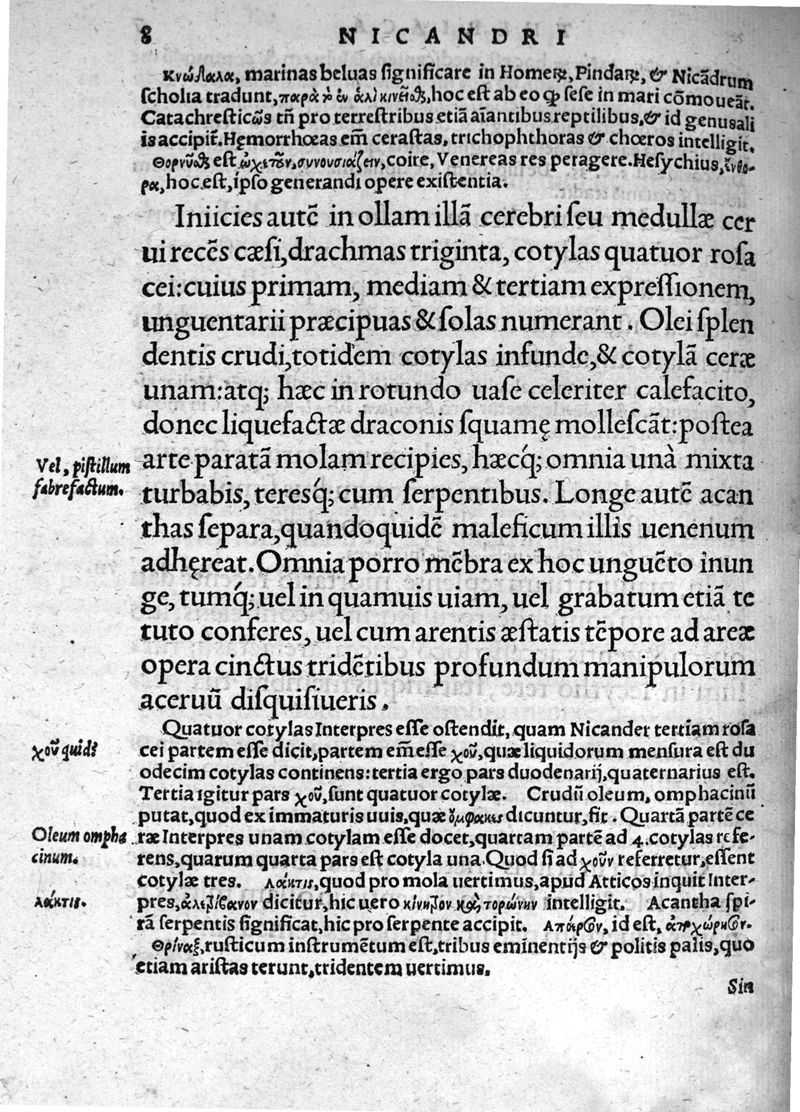 8 NICANDRI
Κνώδαλα, marinas beluas ſignificare in Homerꝝ, Pindarꝝ, & Nicãdrum
ſcholia tradunt, hoc eſt ab eo ꝙ ſeſe in mari cõmoueãt.
Catachreſticῶς tñ pro terreſtribus etiã aĩantibus reptilibus, & id genus ali
is accipit̃. Hęmorrhoeas em̃ ceraſtas, trichophthoras & chœros intelligit.
eſt συνουσιάζειν, coire, Venereas res peragere. Heſychius,
hoc eſt, ipſo generandi opere exiſtentia.
Iniicies autẽ in ollam illã cerebri ſeu medullæ cer
ui recẽs cæſi, drachmas triginta, cotylas quatuor roſa
cei: cuius primam, mediam & tertiam expreſſionem,
unguentarii præcipuas & ſolas numerant. Olei ſplen
dentis crudi, totidem cotylas infunde, & cotylã ceræ
unam: atq; hæc in rotundo uaſe celeriter calefacito,
donec liquefactæ draconis ſquamę molleſcãt: poſtea
Vel, piſtillum
fabrefactum.
arte paratã molam recipies, hæcq́; omnia unà mixta
turbabis, teresq́; cum ſerpentibus. Longe autẽ acan
thas ſepara, quandoquidẽ maleficum illis uenenum
adhęreat. Omnia porro mẽbra ex hoc unguẽto inun
ge, tumq́; uel in quamuis uiam, uel grabatum etiã te
tuto conferes, uel cum arentis æſtatis tẽpore ad areæ
opera cinctus tridẽtibus profundum manipulorum
aceruũ diſquiſiueris.
Quatuor cotylas Interpres eſſe oſtendit, quam Nicander tertiam roſa
χοῦ quid?
cei partem eſſe dicit, partem em̃ eſſe χοῦ, quæ liquidorum menſura eſt du
odecim cotylas continens: tertia ergo pars duodenarij, quaternarius eſt.
Tertia igitur pars χοῦ, ſunt quatuor cotylæ. Crudũ oleum, omphacinũ
putat, quod ex immaturis uuis, quæ ὄμφακες dicuntur, fit. Quartã partẽ ce
Oleum ompha
cinum.
ræ Interpres unam cotylam eſſe docet, quartam partẽ ad 4. cotylas refe-
rens, quarum quarta pars eſt cotyla una. Quod ſi ad χοῦν referretur, eſſent
cotylæ tres. λάκτις, quod pro mola uertimus, apud Atticos inquit Inter-
λάκτις.
pres, dicitur, hic uero intelligit. Acantha ſpi
rã ſerpentis ſignificat, hic pro ſerpente accipit. id eſt,
Θρίναξ, ruſticum inſtrumẽtum eſt, tribus eminentijs & politis palis, quo
etiam ariſtas terunt, tridentem uertimus.
Sin